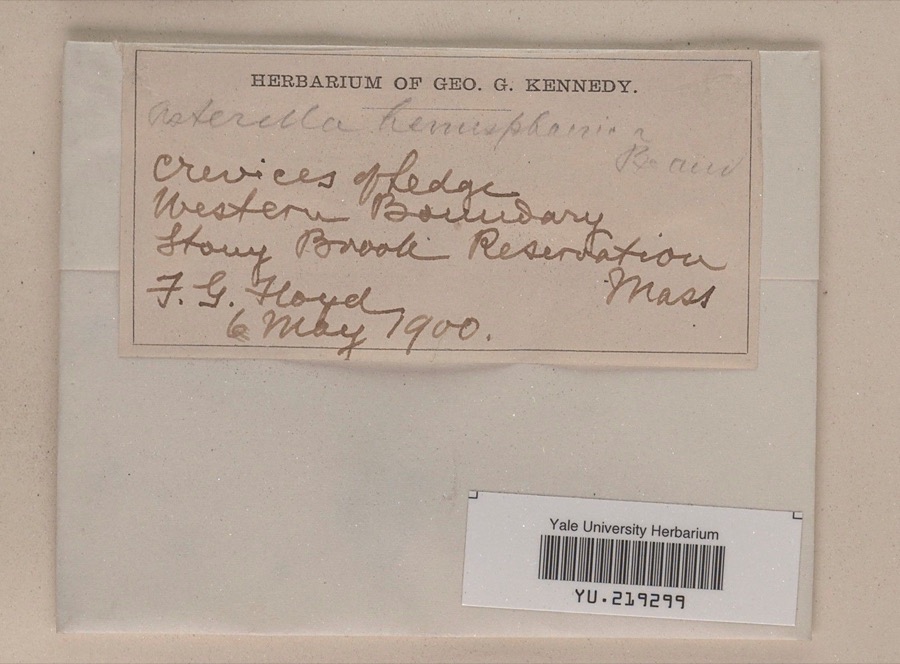 HERBARIUM OF GEO. G. KENNEDY.
Asterella hemisphaerica
Beauv
Crevices of Ledge
Western Boundary
Stony Brook Reservation
Mass
F. G. Floyd
6 May 1900.
Yale University Herbarium
YU.219299